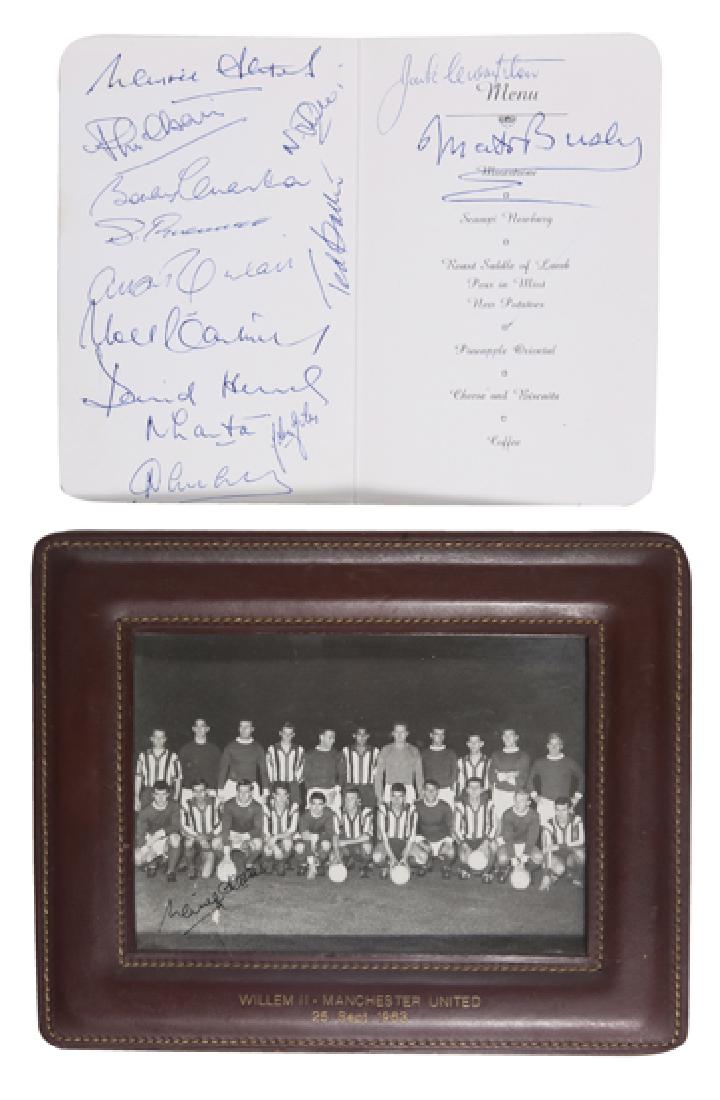 Maurice Setters
Phil Chisnall
N. Stiles
Bobby Charlton
Ted Dalton
Noel Cantwell
David Herd
Jack Crompton
Menu
Matt Busby
Minestrone
Scampi Newburg
Roast Saddle of Lamb
Peas in Mint
New Potatoes
Pineapple Oriental
Cheese and Biscuits
Coffee
Maurice Setters
WILLEM II - MANCHESTER UNITED
25 Sept 1963